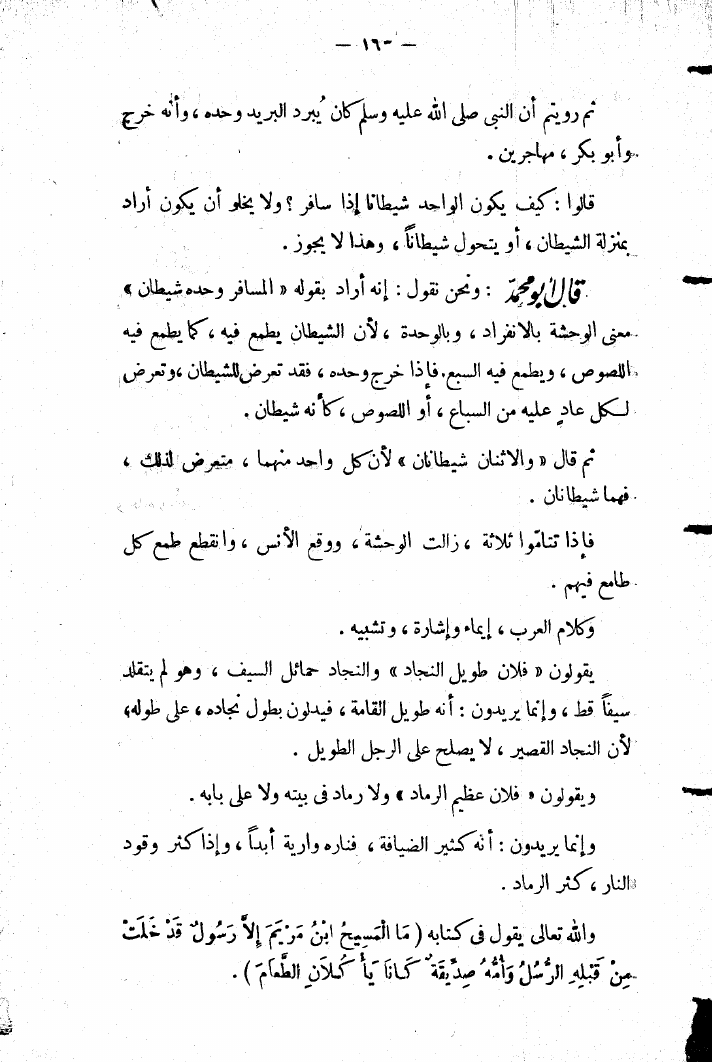 — ١٦٠ —
ثم رويتم أن النبى صلى الله عليه وسلم كان يُبرد البريد وحده ، وأنه خرج
وأبو بكر ، مهاجرين .
قالوا : كيف يكون الواحد شيطانا إذا سافر ؟ ولا يخلو أن يكون أراد
بمنزلة الشيطان ، أو يتحول شيطاناً ، وهذا لا يجوز .
قال أبو محمد : ونحن نقول : إنه أراد بقوله « المسافر وحده شيطان »
معنى الوحشة بالانفراد ، وبالوحدة ، لأن الشيطان يطمع فيه ، كما يطمع فيه
اللصوص ، ويطمع فيه السبع . فإذا خرج وحده ، فقد تعرض للشيطان ، وتعرض
لكل عادٍ عليه من السباع ، أو اللصوص ، كأنه شيطان .
ثم قال « والاثنان شيطانان » لأن كل واحد منهما ، متعرض لذلك ،
فهما شيطانان .
فإذا تنامّوا ثلاثة ، زالت الوحشة ، ووقع الأنس ، وانقطع طمع كل
طامع فيهم .
وكلام العرب ، إيماء وإشارة ، وتشبيه .
يقولون « فلان طويل النجاد » والنجاد حمائل السيف ، وهو لم يتقلد
سيفاً قط ، وإنما يريدون : أنه طويل القامة ، فيدلون بطول نجاده ، على طوله ،
لأن النجاد القصير ، لا يصلح على الرجل الطويل .
ويقولون « فلان عظيم الرماد » ولا رماد فى بيته ولا على بابه .
وإنما يريدون : أنه كثير الضيافة ، فناره وارية أبداً ، وإذا كثر وقود
النار ، كثر الرماد .
والله تعالى يقول فى كتابه ( مَا الْمَسِيحُ ابْنُ مَرْيَمَ إِلاَّ رَسُولٌ قَدْ خَلَتْ
مِنْ قَبْلِهِ الرُّسُلُ وَأُمُّهُ صِدِّيقَةٌ كَانَا يَأْكُلاَنِ الطَّعَامَ ) .